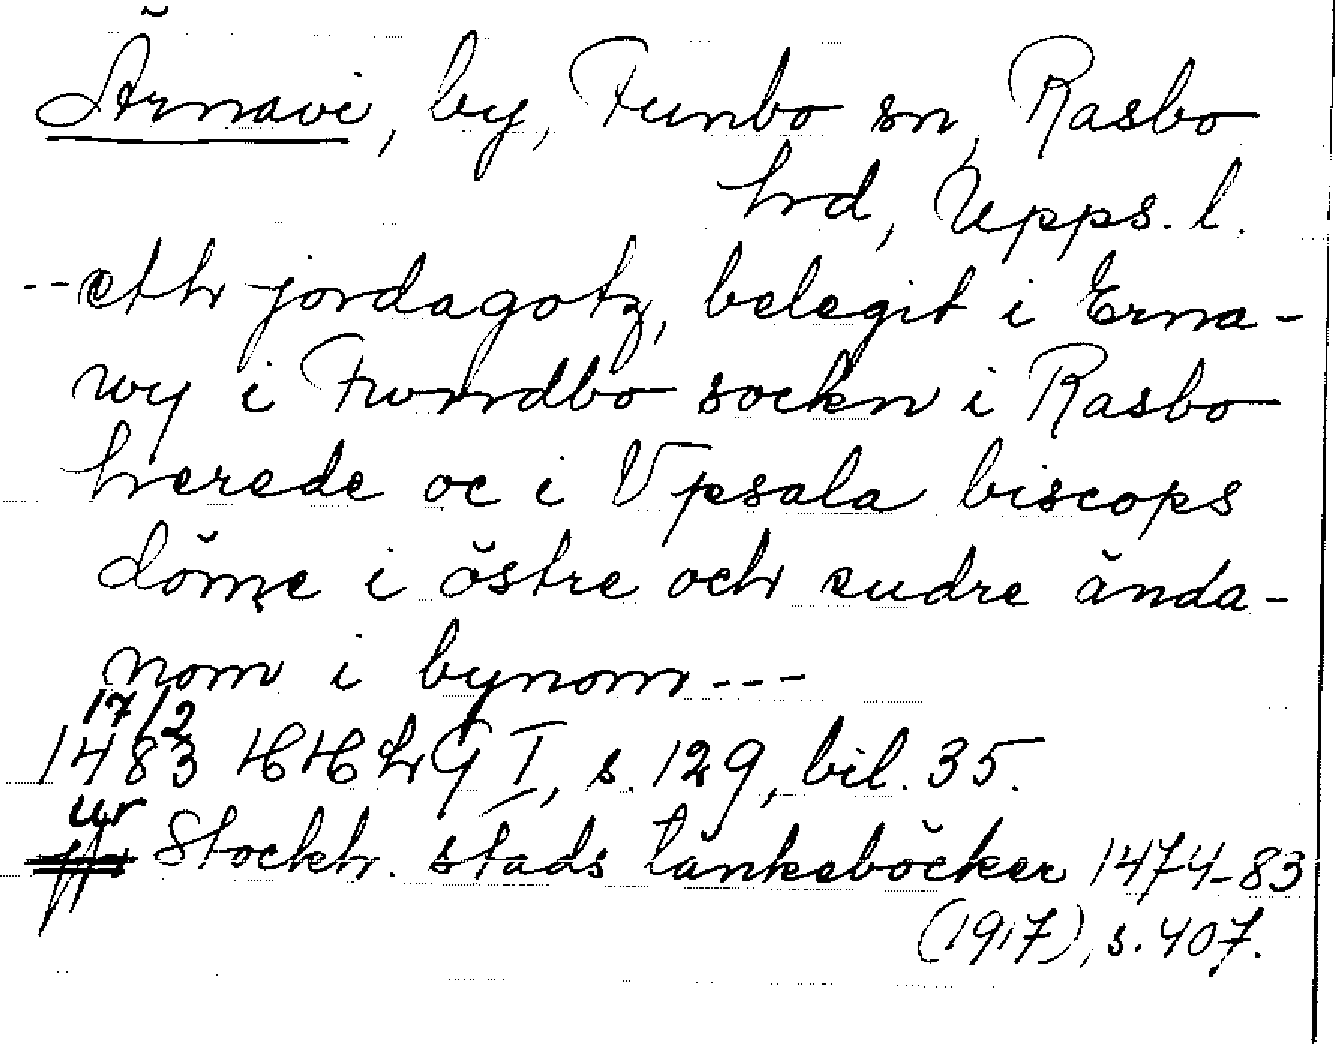 Ärnavi, by, Funbo sn, Rasbo
hrd, Upps. l.
--etth jordagotz, belegit i Erna-
wy i Fwndbo sockn i Rasbo
herede oc i Vpsala biscops
döme i östre och sudre ända-
nom i bynom---
17/2
1483 HHHG I, s. 129, bil. 35.
ur
Stockh. stads tänkeböcker 1474-83
(1917), s. 407.